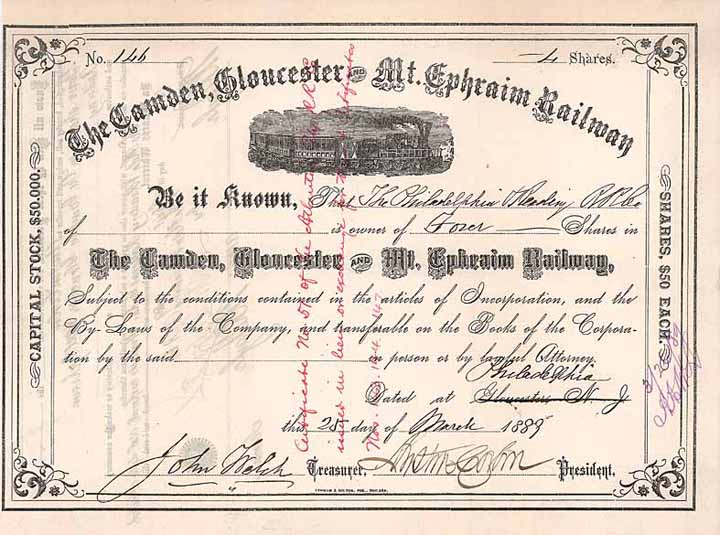 No. 146 4 Shares.
The Camden, Gloucester AND Mt. Ephraim Railway
Be it Known, That The Philadelphia & Reading R.R. Co
of is owner of Four Shares in
The Camden, Gloucester AND Mt. Ephraim Railway,
Subject to the conditions contained in the articles of Incorporation, and the
By-Laws of the Company, and transferable on the Books of the Corpora-
tion by the said in person or by lawful Attorney.
Philadelphia
Dated at Gloucester N. J.
this 25 day of March 1889
John Welch Treasurer, President.
CAPITAL STOCK, $50,000.
SHARES, $50 EACH.
Certificate No. 51 of the Atlantic City R.R. Co
issued in lieu or exchange for Certificates